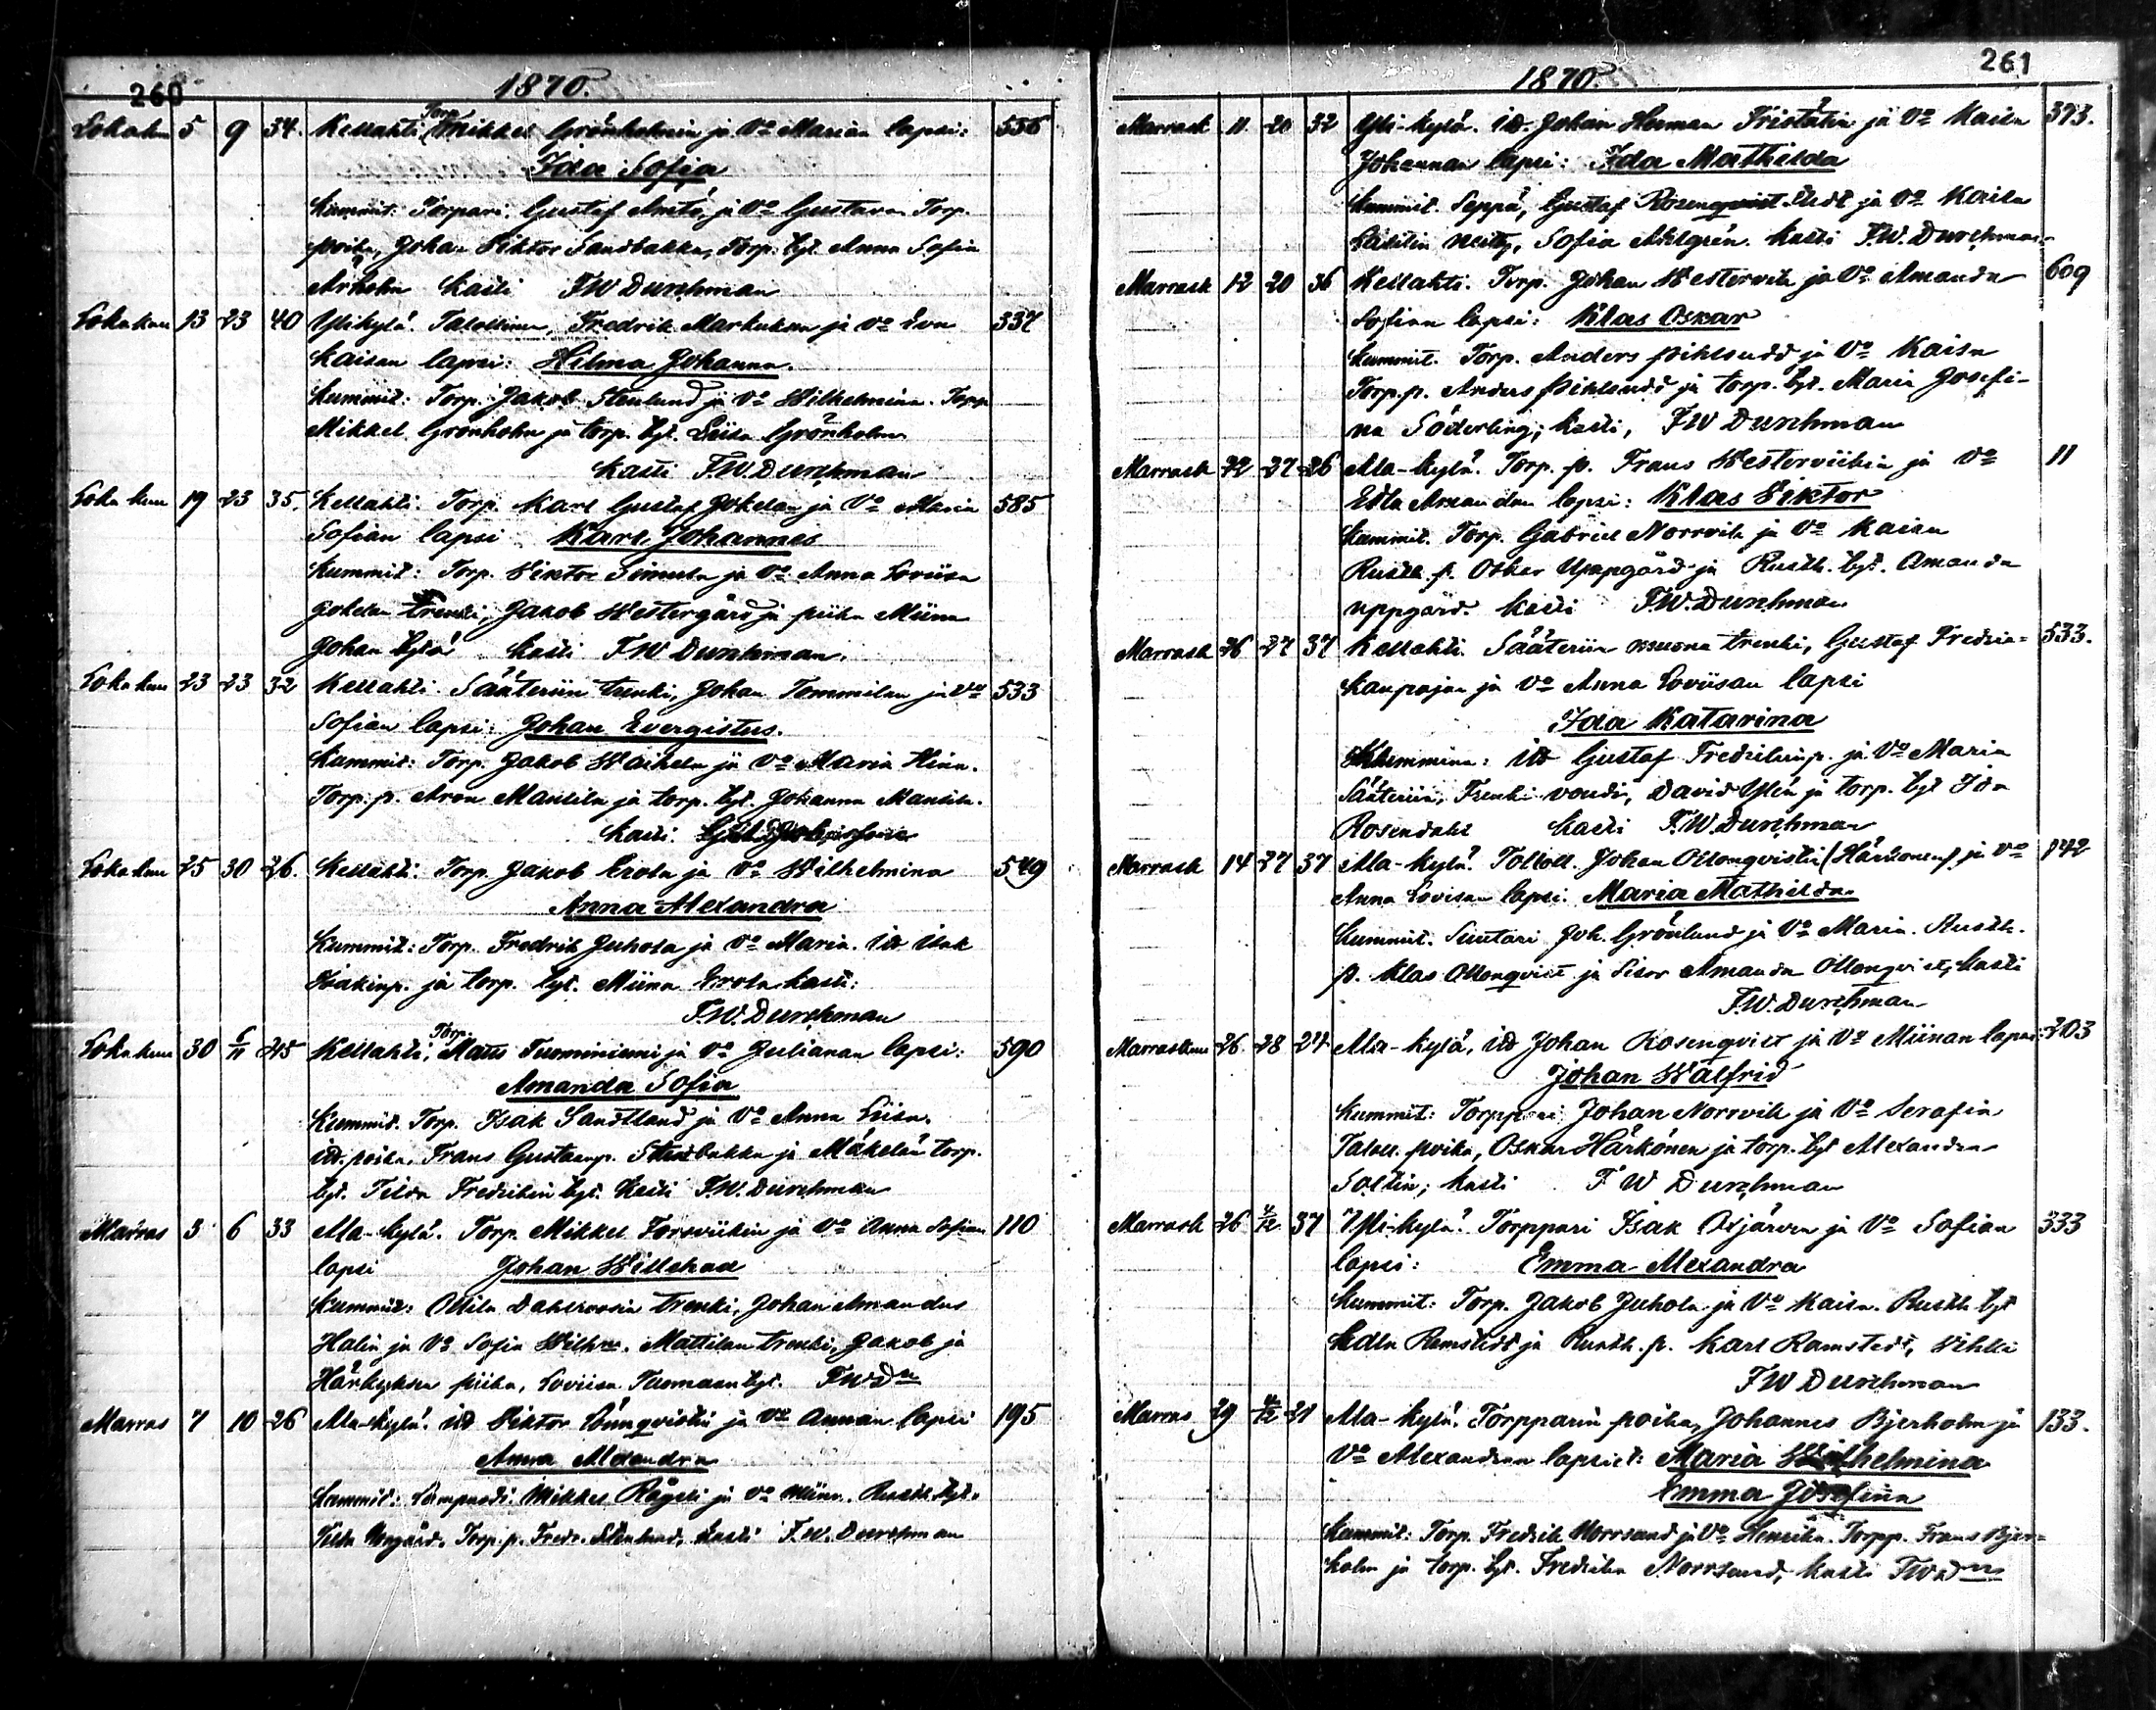 260
1870.
Lokakuu 5 9 34. Kellahti (Torp. Mikkel Grönholmin ja Vo Marian lapsi: 556
Ida Sofia
Kummit: Torpari. Gustaf Amtö, ja Vo Gustava. Torp.
poika, Johan Viktor Sandbakka, Torp. tyt. Anna Sofia
Arholm Kasti F W Durchman
Lokakuu 13 23 40 Ylikylä. Talollinen, Fredrik Markukan ja vo Eva 337
Kaisan lapsi: Hilma Johanna.
Kummit: Torp. Jakob Stenlund ja Vo Wilhelmina. Torp
Mikkel Grönholm ja torp. tyt. Liisa Grönholm
Kasti F.W. Durchman
Lokakuu 19 23 35. Kellahti. Torp. Karl Gustaf Jokelan ja Vo Maria 585
Sofian lapsi Karl Johannes
Kummit: Torp. Viktor Simula ja Vo Anna Loviisa
Jokelan trenki, Jakob Westergård ja piika Miina
Johan tytär Kasti F W Durchman.
Lokakuu 23 23 32 Kellahti. Sääteriin trenki, Johan Tommilan ja Vo 533
Sofian lapsi: Johan Evergistus.
Kummit: Torp. Jakob Waihela ja Vo Maria Hena.
Torp. p. Aron Mansila ja torp. tyt. Johanna Mansila.
Kasti:
Lokakuu 25 30 26. Kellahti. Torp. Jakob Erola ja Vo Wilhelmina 549
Anna Alexandra
Kummit: Torp. Fredrik Juhola ja Vo Maria. itt Isak
Isakinp. ja torp. tyt. Miina Erola kasti:
F.W. Durchman
Lokakuu 30 6/11 45 Kellahti, Torp. Matts Tuominiemi ja Vo Julianan lapsi: 590
Amanda Sofia
Kummit. Torp. Isak Sandtland ja Vo Anna Liisa.
itt. poika, Frans Gustaanp. Stenbakka ja Mäkelän torp.
tyt. Tilda Fredrikin tyt. Kasti F.W. Durchman
Marras 3 6 33 Ala-kylä. Torp. Mikkel Forsviikin ja Vo Anna Sofian 110
lapsi Johan Willehad
Kummit: Ollila Dahlroosin trenki, Johan Amandus
Halin ja Vo Sofia Wilhna. Mattilan trenki, Jakob ja
Härkyksen piika, Loviisa Tuomaan tyt. FWDn
Marras 7 10 26 Ala-kylä. itt Viktor Lönnqvistin ja Vo Annan lapsi 195
Anna Alexandra
Kummit: Lampuodi. Mikkel Rågeli ja Vo Miina. Rusth. tyt.
Tilda Norgård. Torp. p. Fredr. Stenlund. Kasti F.W. Durchman
261
1870.
Marrask 11. 20 32 Yli-kylä. itt. Johan Herman Fristätin ja Vo Kaisa 373.
Johannan lapsi: Ida Mathilda
Kummit. Seppä, Gustaf Rosenqvist ja Vo Kaisa
neity, Sofia Ahlgrén. Kasti F.W. Durchman
Marrask 12 20 36 Kellahti. Torp. Johan Westervik ja Vo Amanda 609
Sofian lapsi: Klas Oskar
Kummit. Torp. Anders Pihlsudd ja Vo Kaisa
Torp. p. Anders Pihlsudd ja torp. tyt. Maria Josefi-
na Söderling; Kasti, F W Durchman
Marrask 22 27 26 Ala-kylä. Torp. p. Frans Westerviikin ja Vo 11
Edla Amandan lapsi: Klas Viktor
Kummit. Torp. Gabriel Norrvik ja Vo Kaisa
Rusth. p. Oskar Uppgård ja Rusth. tyt. Amanda
Uppgård. Kasti F.W. Durchman
Marrask 26 27 37 Kellahti Sääteriin muona trenki, Gustaf Fredrik= 533.
Kaupajan ja Vo Anna Loviisan lapsi
Ida Katarina
Kummina: itt Gustaf Fredrikinp. ja Vo Maria
Sääteriin, Trenki vouti, David Ylén ja torp. tyt Ida
Rosendahl Kasti F.W. Durchman
Marrask 14 27 37 Ala-kylä. Taloll. Johan Ollonqvistin (Härkönen) ja Vo 142
Anna Lovisan lapsi. Maria Mathilda
Kummit. Suutari Joh. Grönlund ja Vo Maria. Rusth.
p. Klas Ollonqvist ja Sisar Amanda Ollonqvist, Kasti
F.W. Durchman
Marraskuu 26. 28 27 Ala-kylä, itt Johan Rosenqvist ja Vo Miinan lapsi: 203
Johan Walfrid
Kummit: Torppari Johan Norrvik ja Vo Serafia
Taloll. poika, Oskar Härkönen ja torp. tyt Alexandra
Soltin; Kasti F W Durchman
Marrask 26 4/12 37 Yli-kylä. Torppari Isak Oxjärven ja Vo Sofian 333
lapsi: Emma Alexandra
Kummit: Torp. Jakob Juhola ja Vo Kaisa. Rusth tyt
Hedla Ramstedt ja Rusth. p. Karl Ramstedt, Vihki
F W Durchman
Marras 29 4/12 21 Ala-kylä. Torpparin poika, Johannes Bjerholm ja 133.
Vo Alexandran lapset: Maria Wilhelmina
Emma Josefiina
Kummit: Torp. Fredrik Norrsand ja Vo Henrika. Torpp. Frans Bjer=
holm ja torp. tyt. Fredrika Norrsand, Kasti FWDn